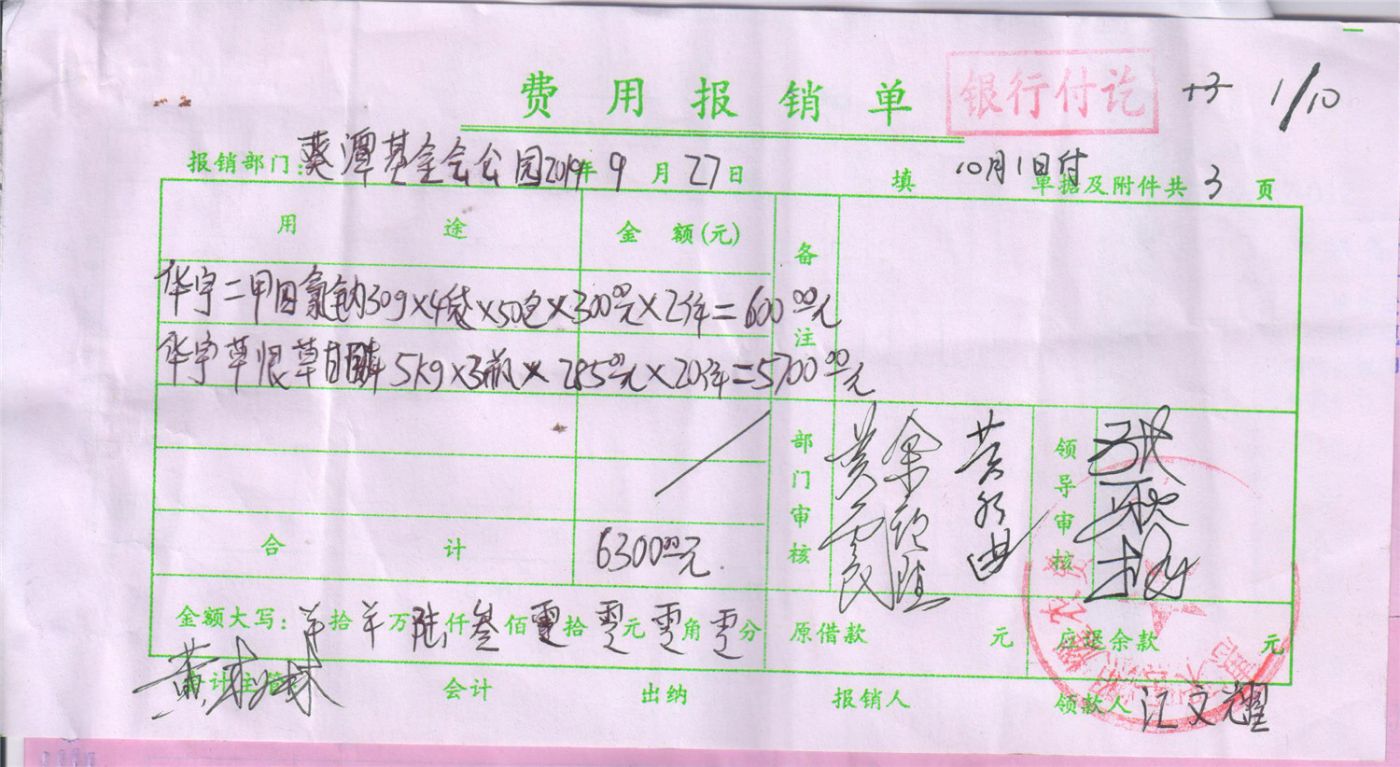 费用报销单 银行付讫 +3 1/10
报销部门:葵潭基金会公园2019年9月27日 填 10月1日付 单据及附件共3页
用途 金额(元) 备注
华宇二甲四氯钠30g×4袋×50包×300.00元×2件=600.00元
华宇草垠草甘膦5kg×3瓶×285.00元×20件=5700.00元
部门审核 领导审核
合计 6300.00元
金额大写:羊拾羊万陆仟叁佰零拾零元零角零分 原借款 元 应退余款 元
会计主管 会计 出纳 报销人 领款人 江文耀